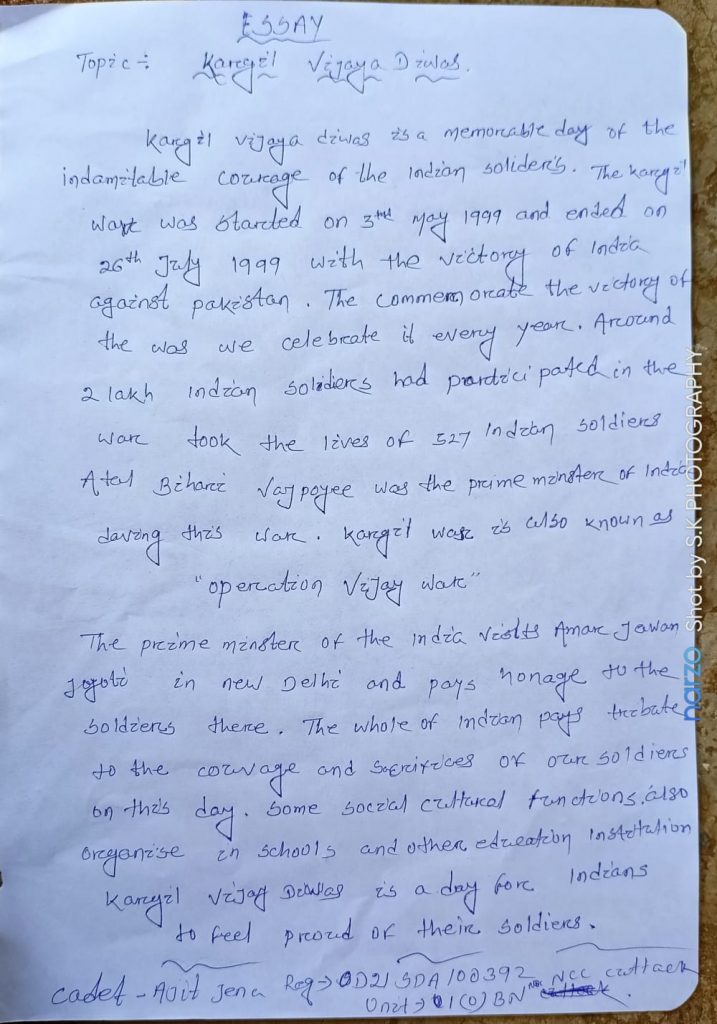 ESSAY
Topic ÷ Kargil Vijaya Diwas.
Kargil vijaya diwas is a memorable day of the
indamitable courage of the Indian soliders. The kargil
war was started on 3rd May 1999 and ended on
26th July 1999 with the victory of India
against pakistan. The Commemorate the victory of
the was we celebrate it every year. Around
2 lakh Indian soldiers had participated in the
war took the lives of 527 Indian soldiers
Atal Bihari Vajpoyee was the prime minster of India
daving this war. Kargil war is also known as
"operation Vijay war"
The prime minster of the India visits Amar Jawan
Jyoti in new Delhi and pays honage to the
soldiers there. The whole of Indian pays tribute
to the courage and sacrifices of our soldiers
on this day. Some social cultural functions also
organise in schools and other education institution
Kargil Vijay Diwas is a day for Indians
to feel proud of their soldiers.
Cadet - Ajit Jena Reg → OD21SDA100392
Unit → 1(O) BN NCC cuttack
narzo Shot by S.K PHOTOGRAPHY